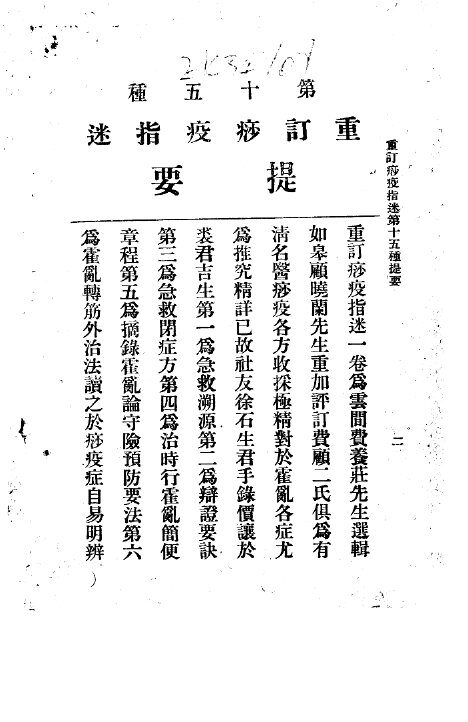 重訂痧疫指迷第十五種提要
二
第十五種
重訂痧疫指迷
提要
重訂痧疫指迷一卷爲雲間費養莊先生選輯
如皋顧曉蘭先生重加評訂費顧二氏俱爲有
淸名醫痧疫各方收採極精對於霍亂各症尤
爲推究精詳已故社友徐石生君手錄價讓於
裘君吉生第一爲急救溯源第二爲辯證要訣
第三爲急救閉症方第四爲治時行霍亂簡便
章程第五爲摘錄霍亂論守險預防要法第六
爲霍亂轉筋外治法讀之於痧疫症自易明辨